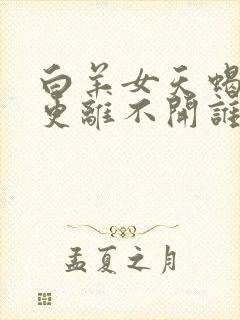 白羊女天蝎
更離不開誰
孟夏之月